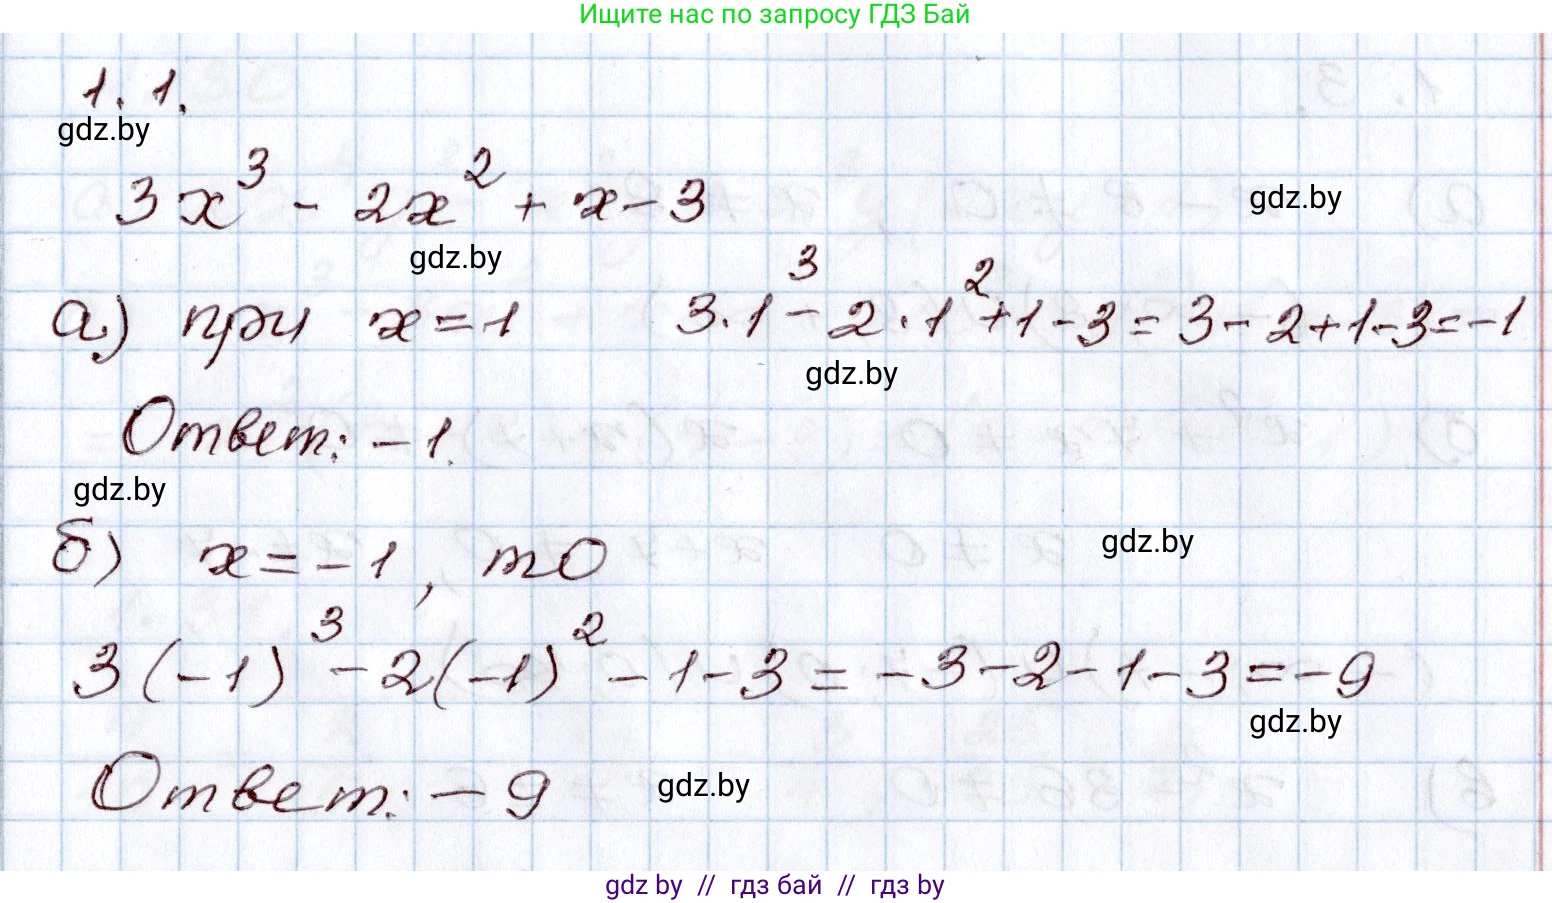 Ищите нас по запросу ГДЗ Бай
1.1.
gdz.by
3x³ - 2x² + x - 3
gdz.by
gdz.by
а) при x = 1 3·1³ - 2·1² + 1 - 3 = 3 - 2 + 1 - 3 = -1
gdz.by
Ответ: -1.
gdz.by
б) x = -1, то
gdz.by
3(-1)³ - 2(-1)² - 1 - 3 = -3 - 2 - 1 - 3 = -9
gdz.by
Ответ: -9
gdz.by
gdz by // гдз бай // гдз by